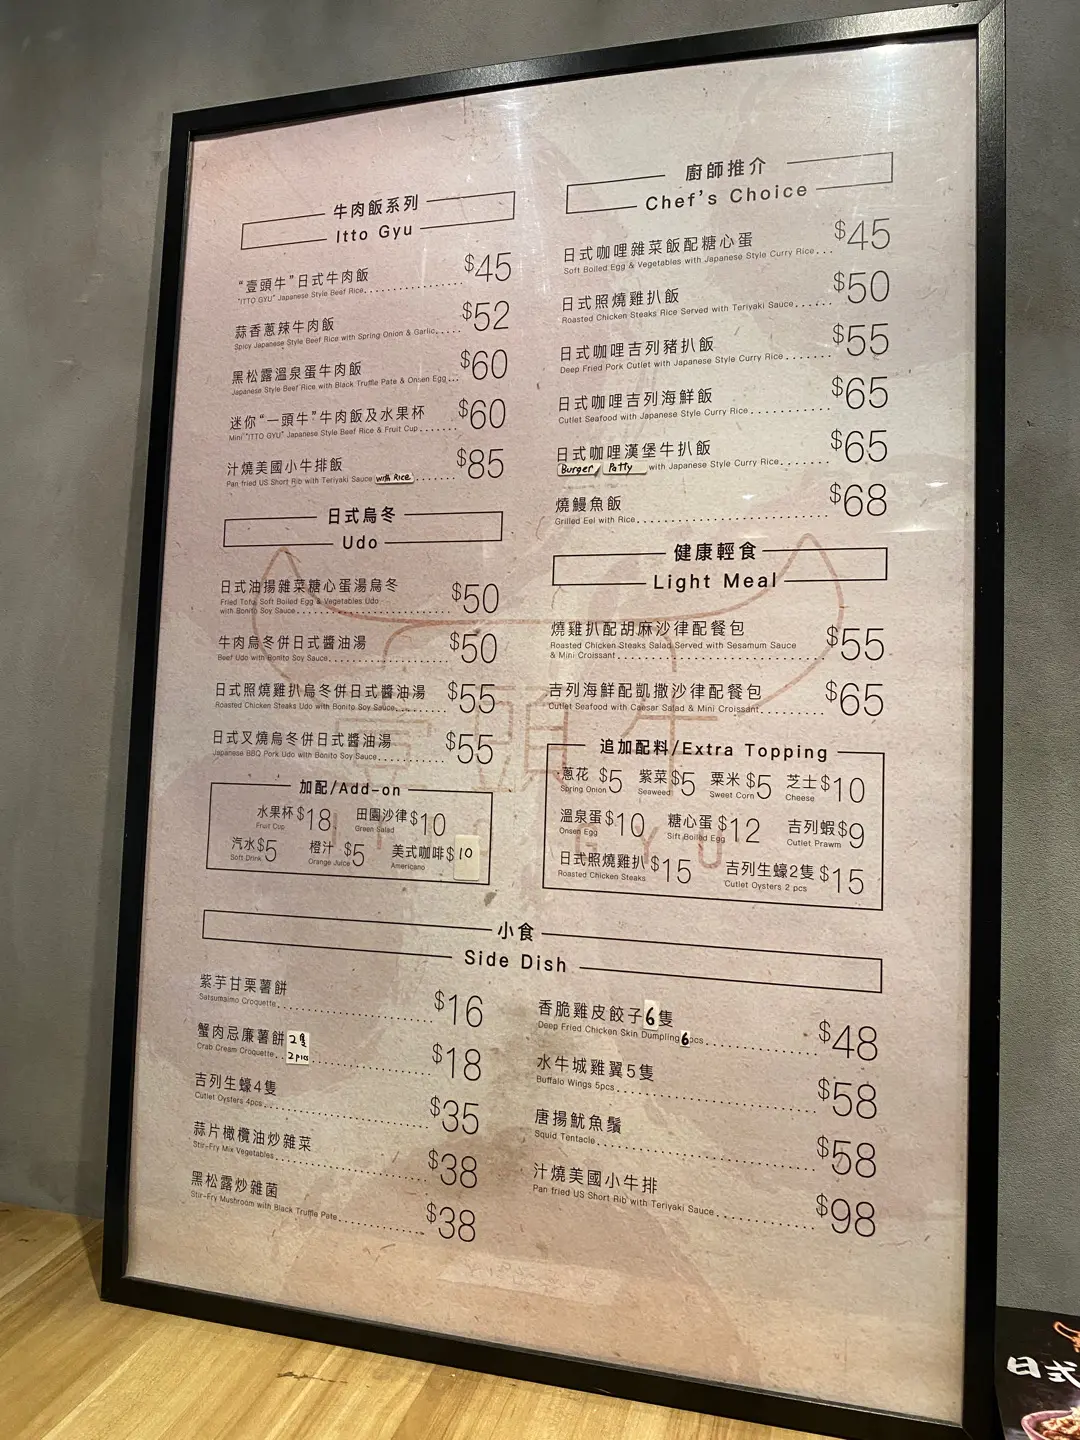 牛肉飯系列
Itto Gyu
“壹頭牛”日式牛肉飯 $45
"ITTO GYU" Japanese Style Beef Rice
蒜香蔥辣牛肉飯 $52
Spicy Japanese Style Beef Rice with Spring Onion & Garlic
黑松露溫泉蛋牛肉飯 $60
Japanese Style Beef Rice with Black Truffle Pate & Onsen Egg
迷你“一頭牛”牛肉飯及水果杯 $60
Mini "ITTO GYU" Japanese Style Beef Rice & Fruit Cup
汁燒美國小牛排飯 $85
Pan fried US Short Rib with Teriyaki Sauce with Rice
日式烏冬
Udo
日式油揚雜菜糖心蛋湯烏冬 $50
Fried Tofu, Soft Boiled Egg & Vegetables Udo
with Bonito Soy Sauce
牛肉烏冬併日式醬油湯 $50
Beef Udo with Bonito Soy Sauce
日式照燒雞扒烏冬併日式醬油湯 $55
Roasted Chicken Steaks Udo with Bonito Soy Sauce
日式叉燒烏冬併日式醬油湯 $55
Japanese BBQ Pork Udo with Bonito Soy Sauce
加配/Add-on
水果杯 $18 田園沙律 $10
Fruit Cup Green Salad
汽水 $5 橙汁 $5 美式咖啡 $10
Soft Drink Orange Juice Americano
廚師推介
Chef's Choice
日式咖哩雜菜飯配糖心蛋 $45
Soft Boiled Egg & Vegetables with Japanese Style Curry Rice
日式照燒雞扒飯 $50
Roasted Chicken Steaks Rice Served with Teriyaki Sauce
日式咖哩吉列豬扒飯 $55
Deep Fried Pork Cutlet with Japanese Style Curry Rice
日式咖哩吉列海鮮飯 $65
Cutlet Seafood with Japanese Style Curry Rice
日式咖哩漢堡牛扒飯 $65
Burger Patty with Japanese Style Curry Rice
燒鰻魚飯 $68
Grilled Eel with Rice
健康輕食
Light Meal
燒雞扒配胡麻沙律配餐包 $55
Roasted Chicken Steaks Salad Served with Sesamum Sauce
& Mini Croissant
吉列海鮮配凱撒沙律配餐包 $65
Cutlet Seafood with Caesar Salad & Mini Croissant
追加配料/Extra Topping
蔥花 $5 紫菜 $5 粟米 $5 芝士 $10
Spring Onion Seaweed Sweet Corn Cheese
溫泉蛋 $10 糖心蛋 $12 吉列蝦 $9
Onsen Egg Sift Boiled Egg Cutlet Prawm
日式照燒雞扒 $15 吉列生蠔2隻 $15
Roasted Chicken Steaks Cutlet Oysters 2 pcs
壹頭牛
ITTO GYU
小食
Side Dish
紫芋甘栗薯餅 $16
Satsumaimo Croquette
蟹肉忌廉薯餅 2隻 $18
Crab Cream Croquette 2pcs
吉列生蠔4隻 $35
Cutlet Oysters 4pcs
蒜片橄欖油炒雜菜 $38
Stir-Fry Mix Vegetables
黑松露炒雜菌 $38
Stir-Fry Mushroom with Black Truffle Pate
香脆雞皮餃子6隻 $48
Deep Fried Chicken Skin Dumpling 6pcs
水牛城雞翼5隻 $58
Buffalo Wings 5pcs
唐揚魷魚鬚 $58
Squid Tentacle
汁燒美國小牛排 $98
Pan fried US Short Rib with Teriyaki Sauce
日式